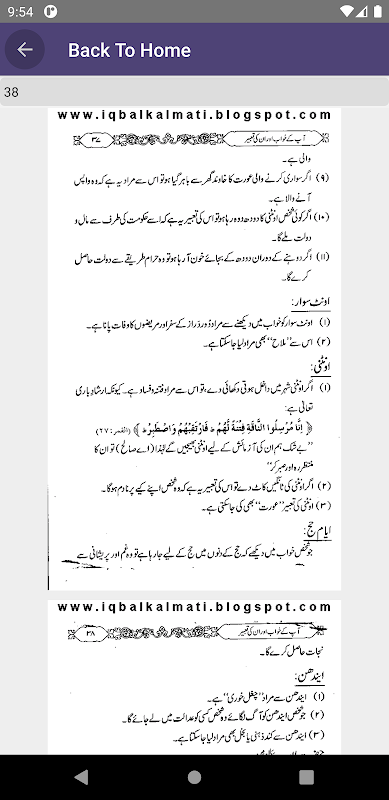 9:54
Back To Home
38
www.iqbalkalmati.blogspot.com
آپ کے خواب اور ان کی تعبیر
۳۷
والی ہے۔
(۹) اگر سواری کرنے والی عورت کا خاوند گھر سے باہر گیا ہو تو اس سے مراد یہ ہے کہ وہ واپس
آنے والا ہے۔
(۱۰) اگر کوئی شخص اونٹنی کا دودھ دوہ رہا ہو تو اس کی تعبیر یہ ہے کہ اسے حکومت کی طرف سے مال و
دولت ملے گا۔
(۱۱) اگر دوہنے کے دوران دودھ کے بجائے خون آ رہا ہو تو وہ حرام طریقے سے دولت حاصل
کرے گا۔
اونٹ سوار:
(۱) اونٹ سوار کو خواب میں دیکھنے سے مراد دُور دراز کے سفر اور مریضوں کا وفات پانا ہے۔
(۲) اس سے ”ملاح“ بھی مراد لیا جا سکتا ہے۔
اونٹنی:
(۱) اگر اونٹنی شہر میں داخل ہوتی دکھائی دے، تو اس سے مراد فتنہ و فساد ہے۔ کیونکہ ارشادِ باری
تعالیٰ ہے:
﴿ اِنَّا مُرْسِلُوا النَّاقَةِ فِتْنَةً لَّهُمْ فَارْتَقِبْهُمْ وَاصْطَبِرْ ﴾ (القمر: ۲۷)
”بے شک ہم ان کی آزمائش کے لیے اونٹنی بھیجیں گے لہٰذا (اے صالح) تو ان کا
منتظر رہ اور صبر کر“
(۲) اگر اونٹنی کی ٹانگیں کاٹ دے تو اس کی تعبیر یہ ہے کہ وہ شخص اپنے کیے پر نادم ہوگا۔
(۳) اونٹنی کی تعبیر ”عورت“ بھی کی جا سکتی ہے۔
ایامِ حج:
جو شخص خواب میں دیکھے کہ حج کے دنوں میں حج کے لیے جا رہا ہے تو وہ غم اور پریشانی سے
www.iqbalkalmati.blogspot.com
آپ کے خواب اور ان کی تعبیر
۳۸
نجات حاصل کرے گا۔
ایندھن:
(۱) ایندھن سے مراد ”چغل خوری“ ہے۔
(۲) جو شخص ایندھن کو آگ لگائے وہ شخص کسی کو عدالت میں لے جائے گا۔
(۳) ایندھن سے کند ذہنی یا بخل بھی مراد لیا جا سکتا ہے۔